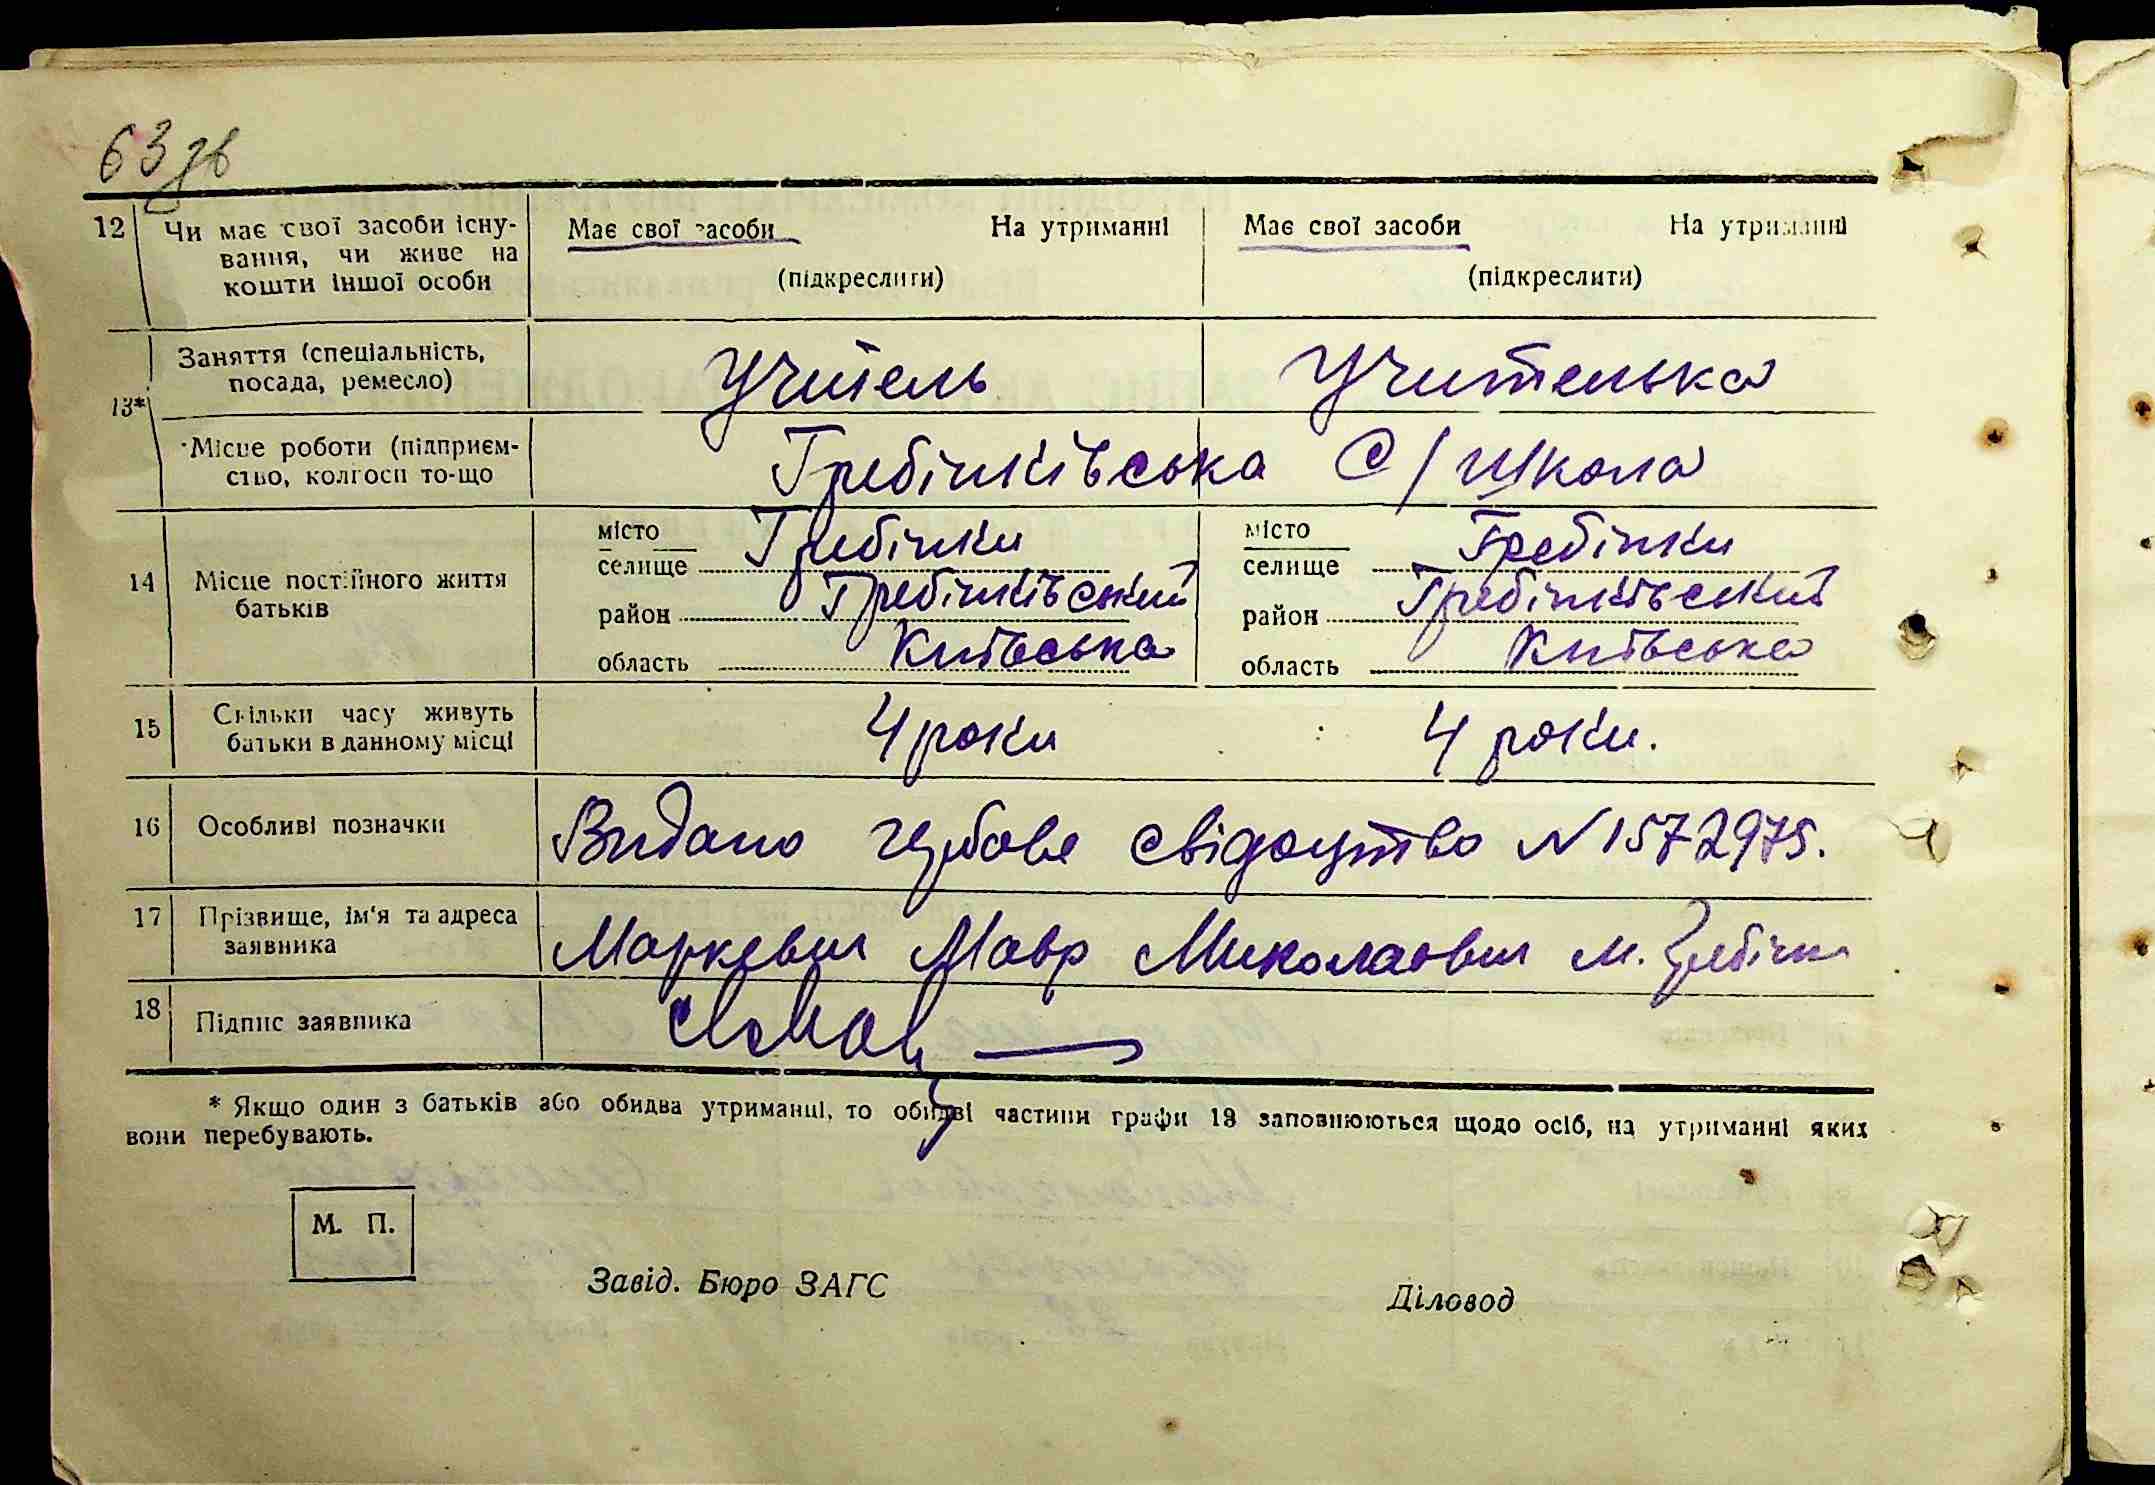 63 зв
12 Чи має свої засоби існу- Має свої засоби На утриманні Має свої засоби На утриманні
вання, чи живе на
кошти іншої особи (підкреслити) (підкреслити)
Заняття (спеціальність, Учитель Учителька
посада, ремесло)
13*
Місце роботи (підприєм- Гребінківська С/Школа
ство, колгосп то-що
місто Гребінки місто Гребінки
14 Місце постійного життя селище селище
батьків район Гребінківський район Гребінківський
область Київська область Київська
15 Скільки часу живуть 4 роки 4 роки.
батьки в данному місці
16 Особливі позначки Видано гербове свідоцтво N 1572975.
17 Прізвище, ім'я та адреса Маркевич Мавр Миколаович м. Гребінки
заявника
18 Підпис заявника
* Якщо один з батьків або обидва утриманці, то обидві частини графи 13 заповнюються щодо осіб, на утриманні яких
вони перебувають.
М. П.
Завід. Бюро ЗАГС Діловод